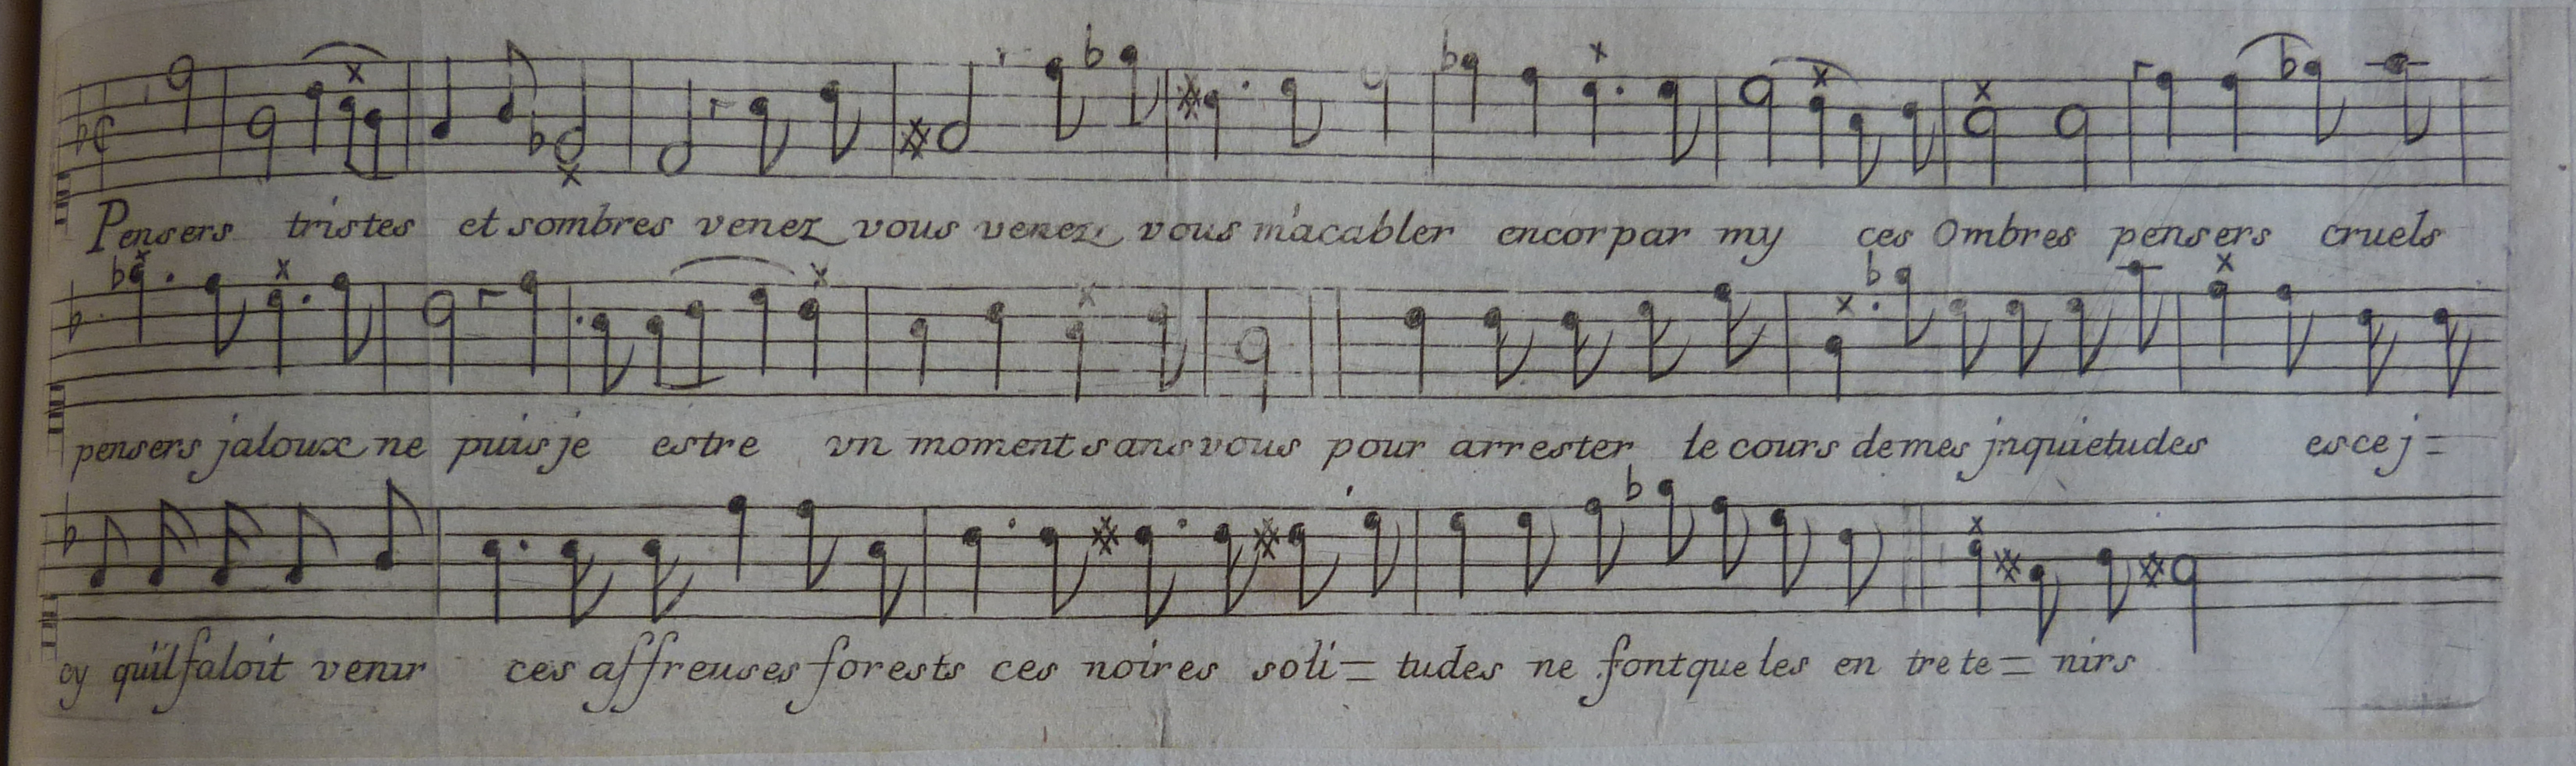 Pensers tristes et sombres venez vous venez vous m'acabler encor par my ces Ombres pensers cruels
pensers jaloux ne puis je estre vn moment sans vous pour arrester le cours de mes jnquietudes es ce j=
cy qu'il faloit venir ces affreuses forests ces noires soli= tudes ne font que les en tre te= nirs